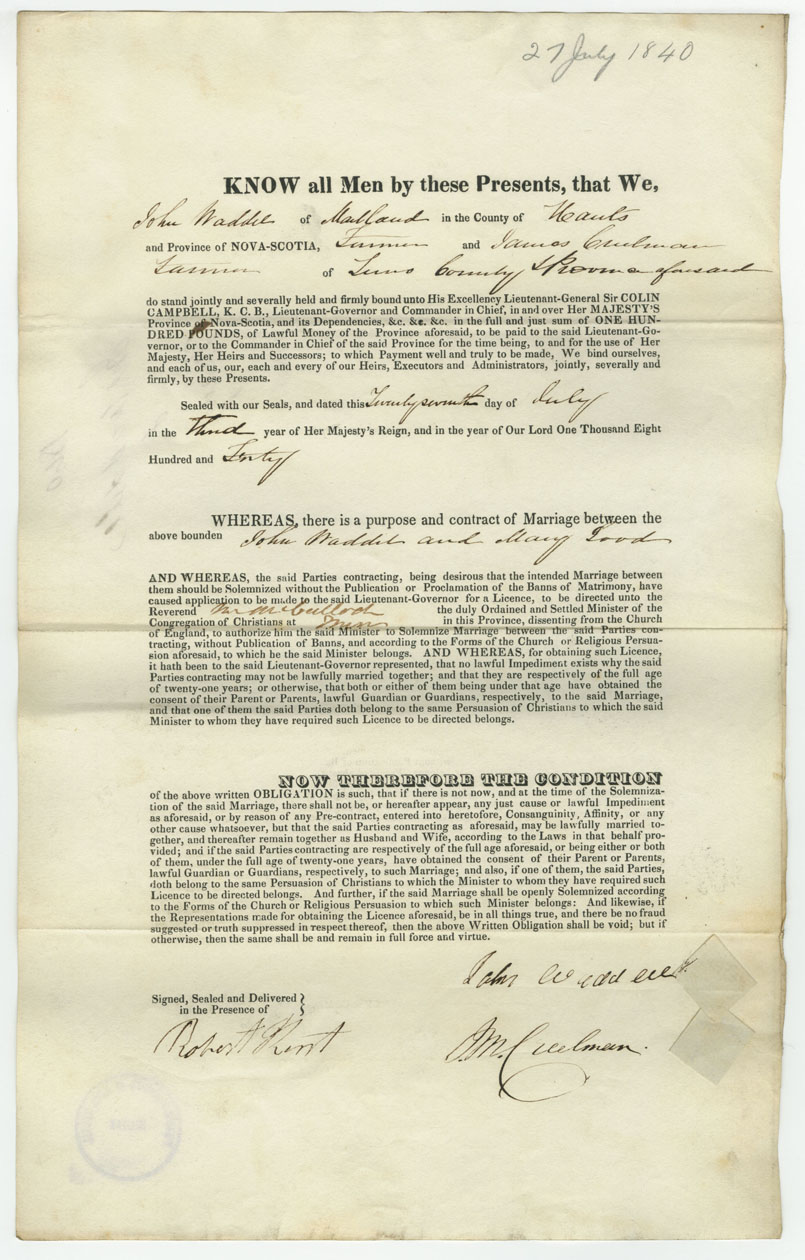 27 July 1840
KNOW all Men by these Presents, that We,
John Waddel of Maitland in the County of Hants
and Province of NOVA-SCOTIA, Farmer and James Creelman
of County & Province aforesaid
do stand jointly and severally held and firmly bound unto His Excellency Lieutenant-General Sir COLIN
CAMPBELL, K. C. B., Lieutenant-Governor and Commander in Chief, in and over Her MAJESTY'S
Province of Nova-Scotia, and its Dependencies, &c. &c. &c. in the full and just sum of ONE HUN-
DRED POUNDS, of Lawful Money of the Province aforesaid, to be paid to the said Lieutenant-Go-
vernor, or to the Commander in Chief of the said Province for the time being, to and for the use of Her
Majesty, Her Heirs and Successors; to which Payment well and truly to be made, We bind ourselves,
and each of us, our, each and every of our Heirs, Executors and Administrators, jointly, severally and
firmly, by these Presents.
Sealed with our Seals, and dated this Twenty seventh day of July
in the Third year of Her Majesty's Reign, and in the year of Our Lord One Thousand Eight
Hundred and Forty
WHEREAS, there is a purpose and contract of Marriage between the
above bounden John Waddel and Mary
AND WHEREAS, the said Parties contracting, being desirous that the intended Marriage between
them should be Solemnized without the Publication or Proclamation of the Banns of Matrimony, have
caused application to be made to the said Lieutenant-Governor for a Licence, to be directed unto the
Reverend Wm McCulloch the duly Ordained and Settled Minister of the
Congregation of Christians at Truro in this Province, dissenting from the Church
of England, to authorize him the said Minister to Solemnize Marriage between the said Parties con-
tracting, without Publication of Banns, and according to the Forms of the Church or Religious Persua-
sion aforesaid, to which he the said Minister belongs. AND WHEREAS, for obtaining such Licence,
it hath been to the said Lieutenant-Governor represented, that no lawful Impediment exists why the said
Parties contracting may not be lawfully married together; and that they are respectively of the full age
of twenty-one years; or otherwise, that both or either of them being under that age have obtained the
consent of their Parent or Parents, lawful Guardian or Guardians, respectively, to the said Marriage,
and that one of them the said Parties doth belong to the same Persuasion of Christians to which the said
Minister to whom they have required such Licence to be directed belongs.
NOW THEREFORE THE CONDITION
of the above written OBLIGATION is such, that if there is not now, and at the time of the Solemniza-
tion of the said Marriage, there shall not be, or hereafter appear, any just cause or lawful Impediment
as aforesaid, or by reason of any Pre-contract, entered into heretofore, Consanguinity, Affinity, or any
other cause whatsoever, but that the said Parties contracting as aforesaid, may be lawfully married to-
gether, and thereafter remain together as Husband and Wife, according to the Laws in that behalf pro-
vided; and if the said Parties contracting are respectively of the full age aforesaid, or being either or both
of them, under the full age of twenty-one years, have obtained the consent of their Parent or Parents,
lawful Guardian or Guardians, respectively, to such Marriage; and also, if one of them, the said Parties,
doth belong to the same Persuasion of Christians to which the Minister to whom they have required such
Licence to be directed belongs. And further, if the said Marriage shall be openly Solemnized according
to the Forms of the Church or Religious Persuasion to which such Minister belongs: And likewise, if
the Representations made for obtaining the Licence aforesaid, be in all things true, and there be no fraud
suggested or truth suppressed in respect thereof, then the above Written Obligation shall be void; but if
otherwise, then the same shall be and remain in full force and virtue.
John Waddell
Signed, Sealed and Delivered
in the Presence of
Robert Creelman